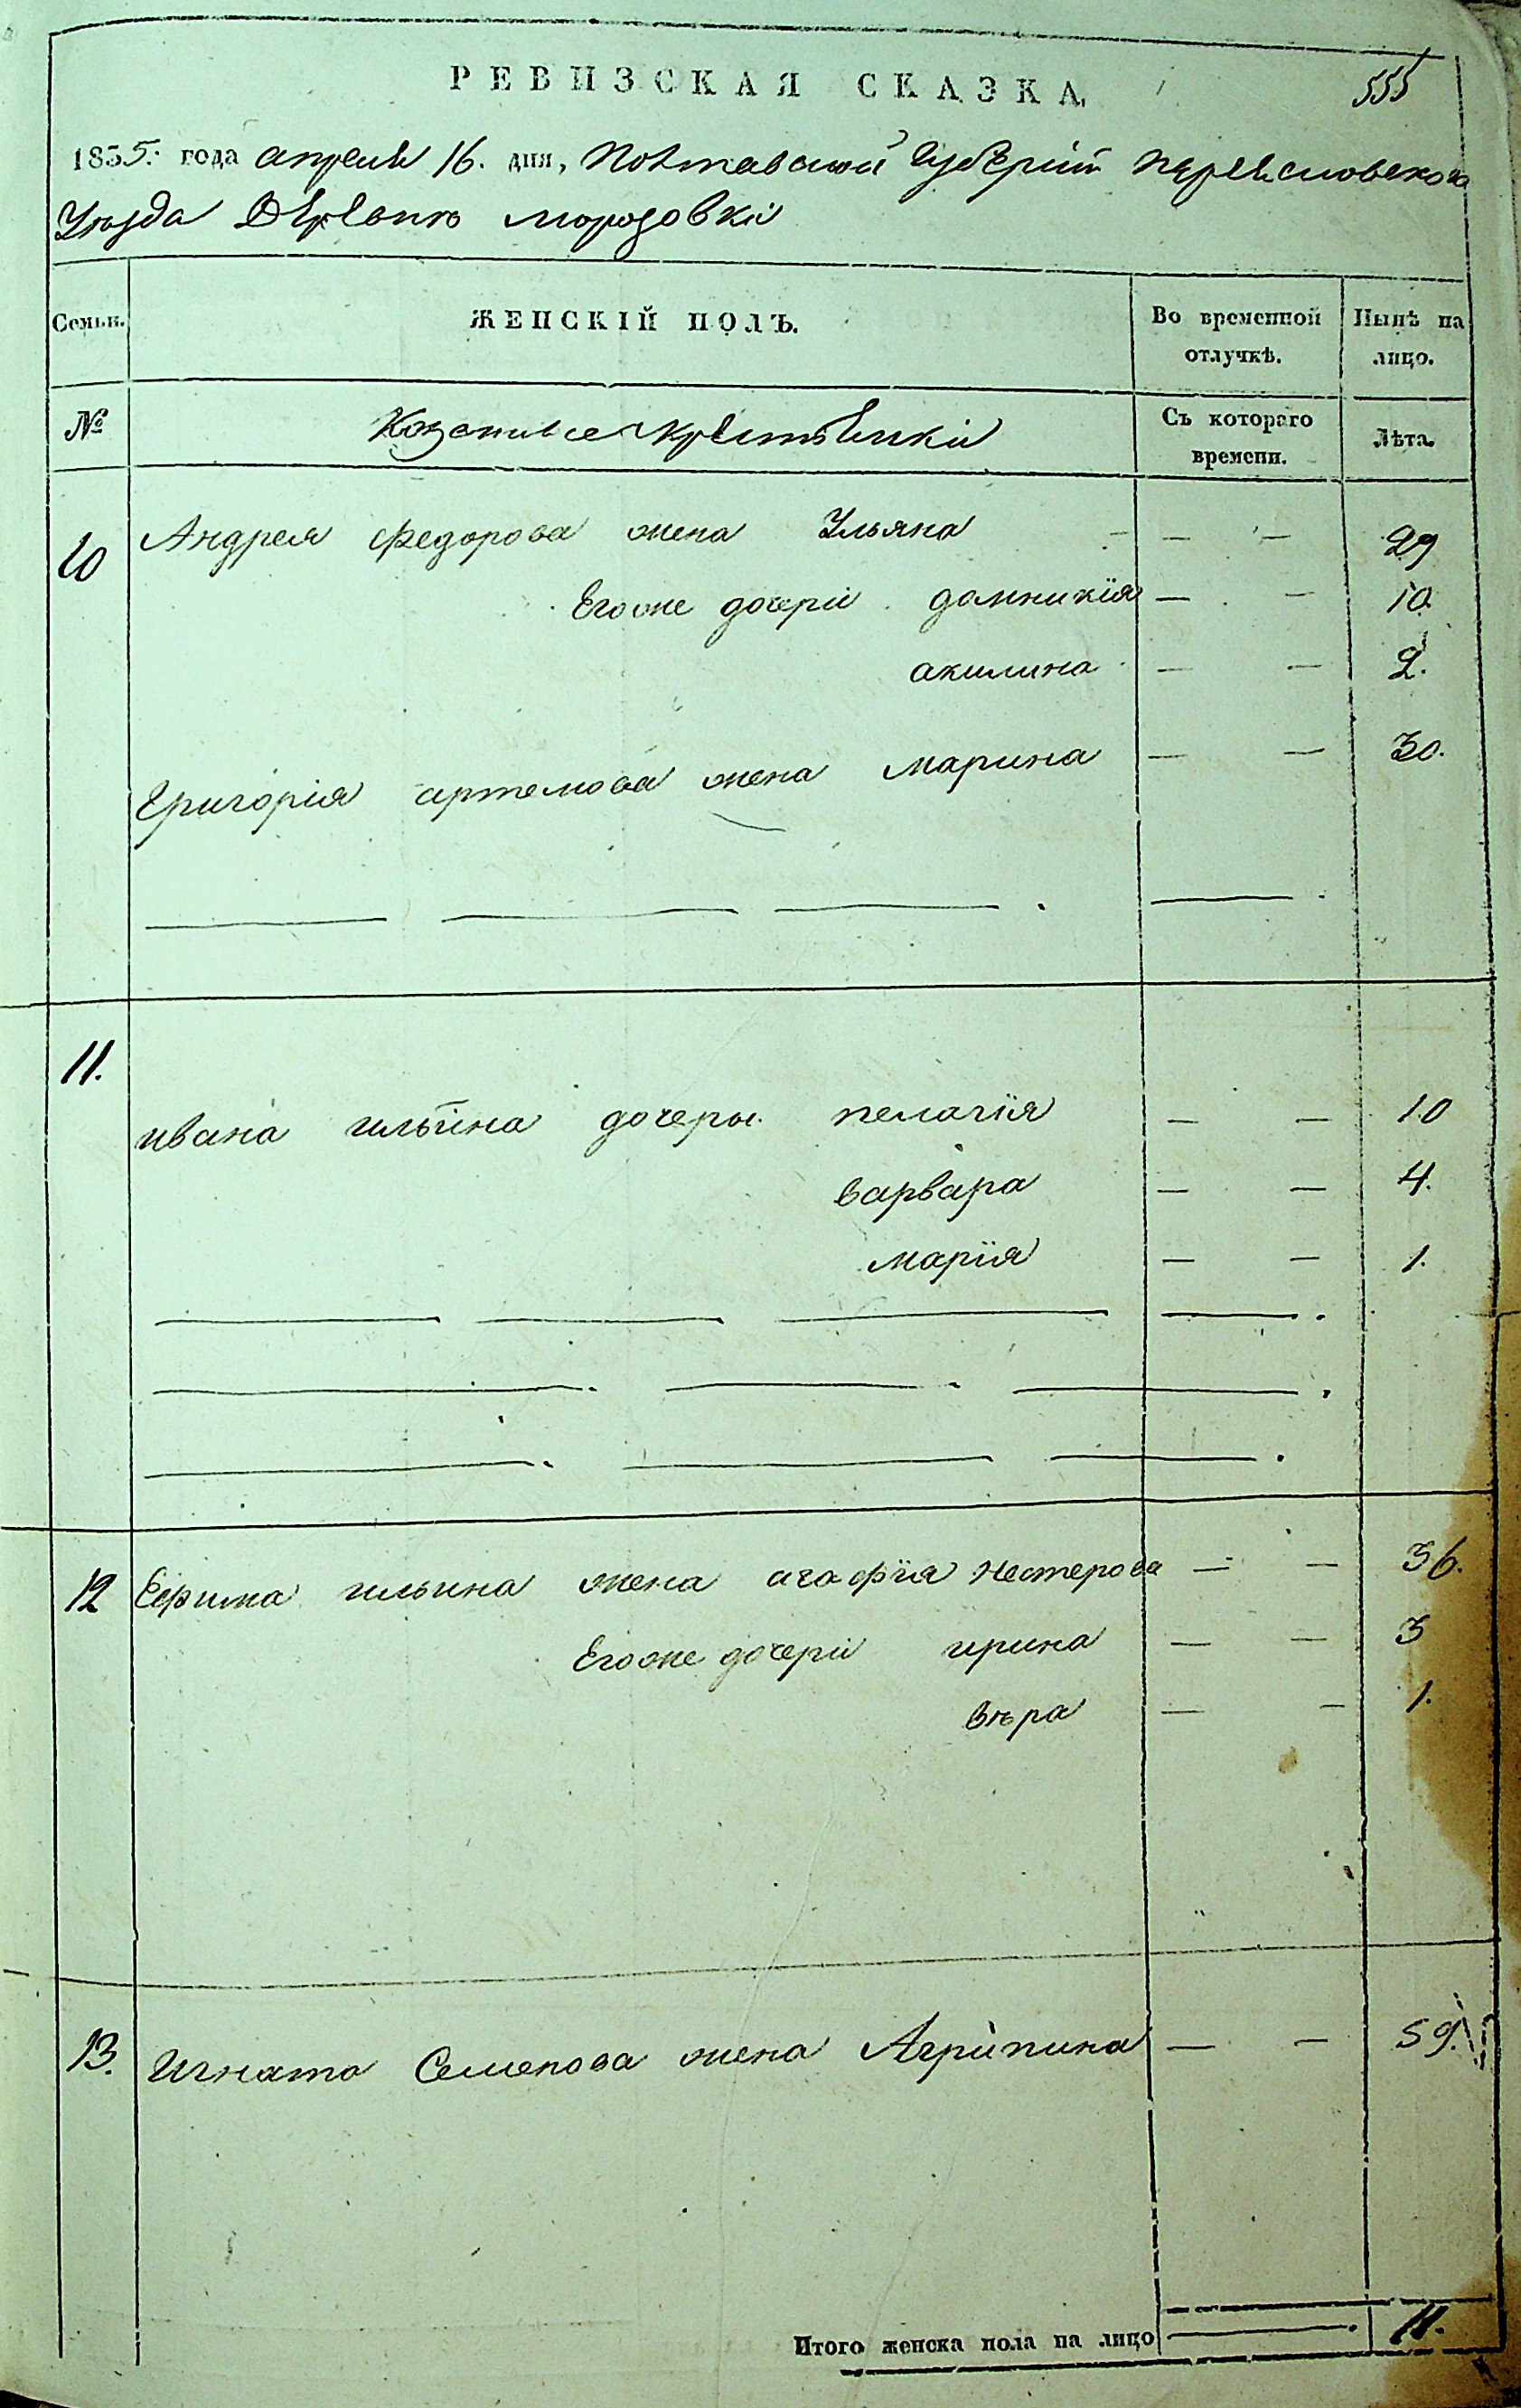 РЕВИЗСКАЯ СКАЗКА,
555
1835. года апреля 16. дня, Полтавской Губерніи переясловского
Уѣзда Деревнѣ морозовки
Семьи.
ЖЕНСКІЙ ПОЛЪ.
Во временной отлучкѣ.
Нынѣ на лицо.
№
Съ котораго времени.
Лѣта.
10 Андрея федорова жена Ульяна — — 29
Егоже дочери домникїя — — 10.
акилина — — 2.
Григорія артемова жена марина — — 30.
11.
ивана ильина дочеры. пелагїя — — 10
варвара — — 4.
марїя — — 1.
12 Ефима ильина жена агафїя Нестерова — — 36.
Егоже дочери ирина — — 3
вѣра — — 1.
13. Игната Семенова жена Агрипина — — 59.
Итого женска пола на лицо — 11.